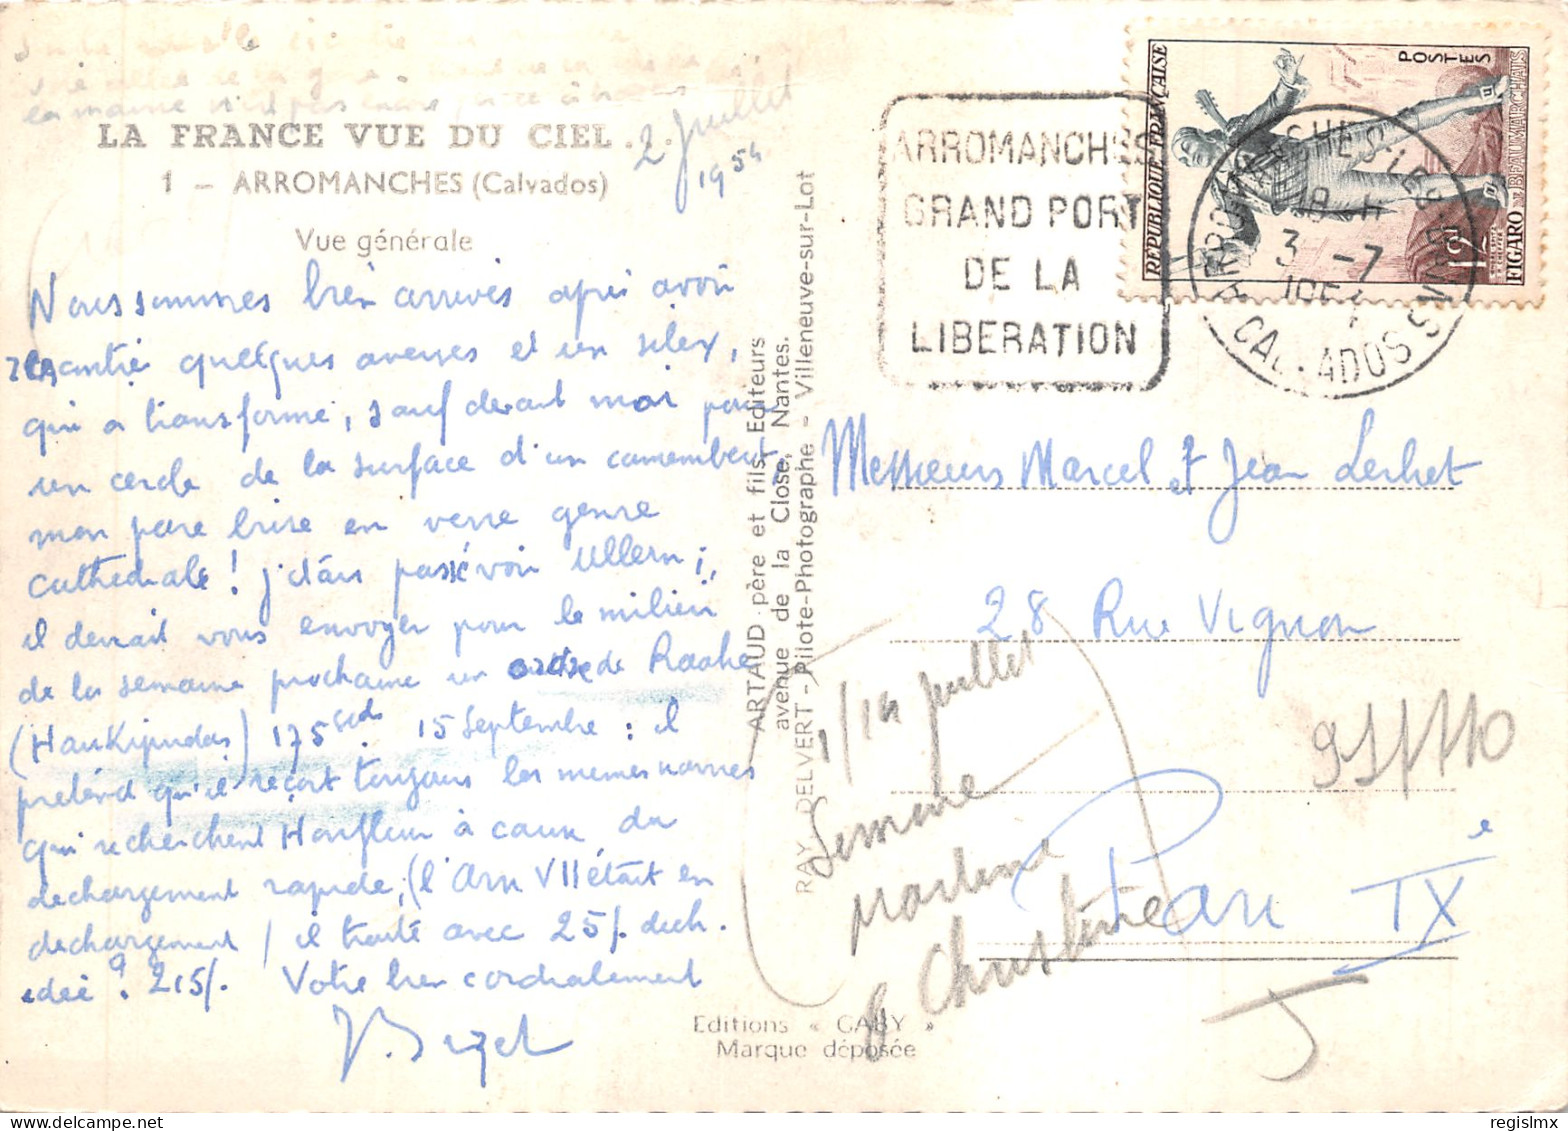 LA FRANCE VUE DU CIEL...
2 Juillet
1954
1 - ARROMANCHES (Calvados)
Vue générale
Nous sommes bien arrivés après avoir
rencontré quelques averses et un silex,
qui a transformé, sauf devant moi pour
un cercle de la surface d'un camembert
mon pare brise en verre genre
cathédrale ! j'étais passé voir Ullern ;
il devrait vous envoyer pour le milieu
de la semaine prochaine un ordre de Raahe
(Haukipudas) 175 sds 15 Septembre : il
prétend qu'il reçoit toujours les mêmes navires
qui recherchent Honfleur à cause du
dechargement rapide, (l'Arn VII était en
dechargement) il traité avec 25/. dech.
idée ? 215/. Votre bien cordialement
J. Bizet
ARTAUD père et fils, Editeurs
avenue de la Close, Nantes.
RAY DELVERT - Pilote-Photographe - Villeneuve-sur-Lot
Editions « GABY »
Marque déposée
ARROMANCHES
GRAND PORT
DE LA
LIBERATION
REPUBLIQUE FRANÇAISE
POSTES
12F
FIGARO
BEAUMARCHAIS
ARROMANCHES LES BAINS
18 H
3 -7
1954
CALVADOS
Messieurs Marcel et Jean Lerhet
28 Rue Vignon
Paris IXe
1/14 juillet
Semaine
Martine
Christine
J
regislmx